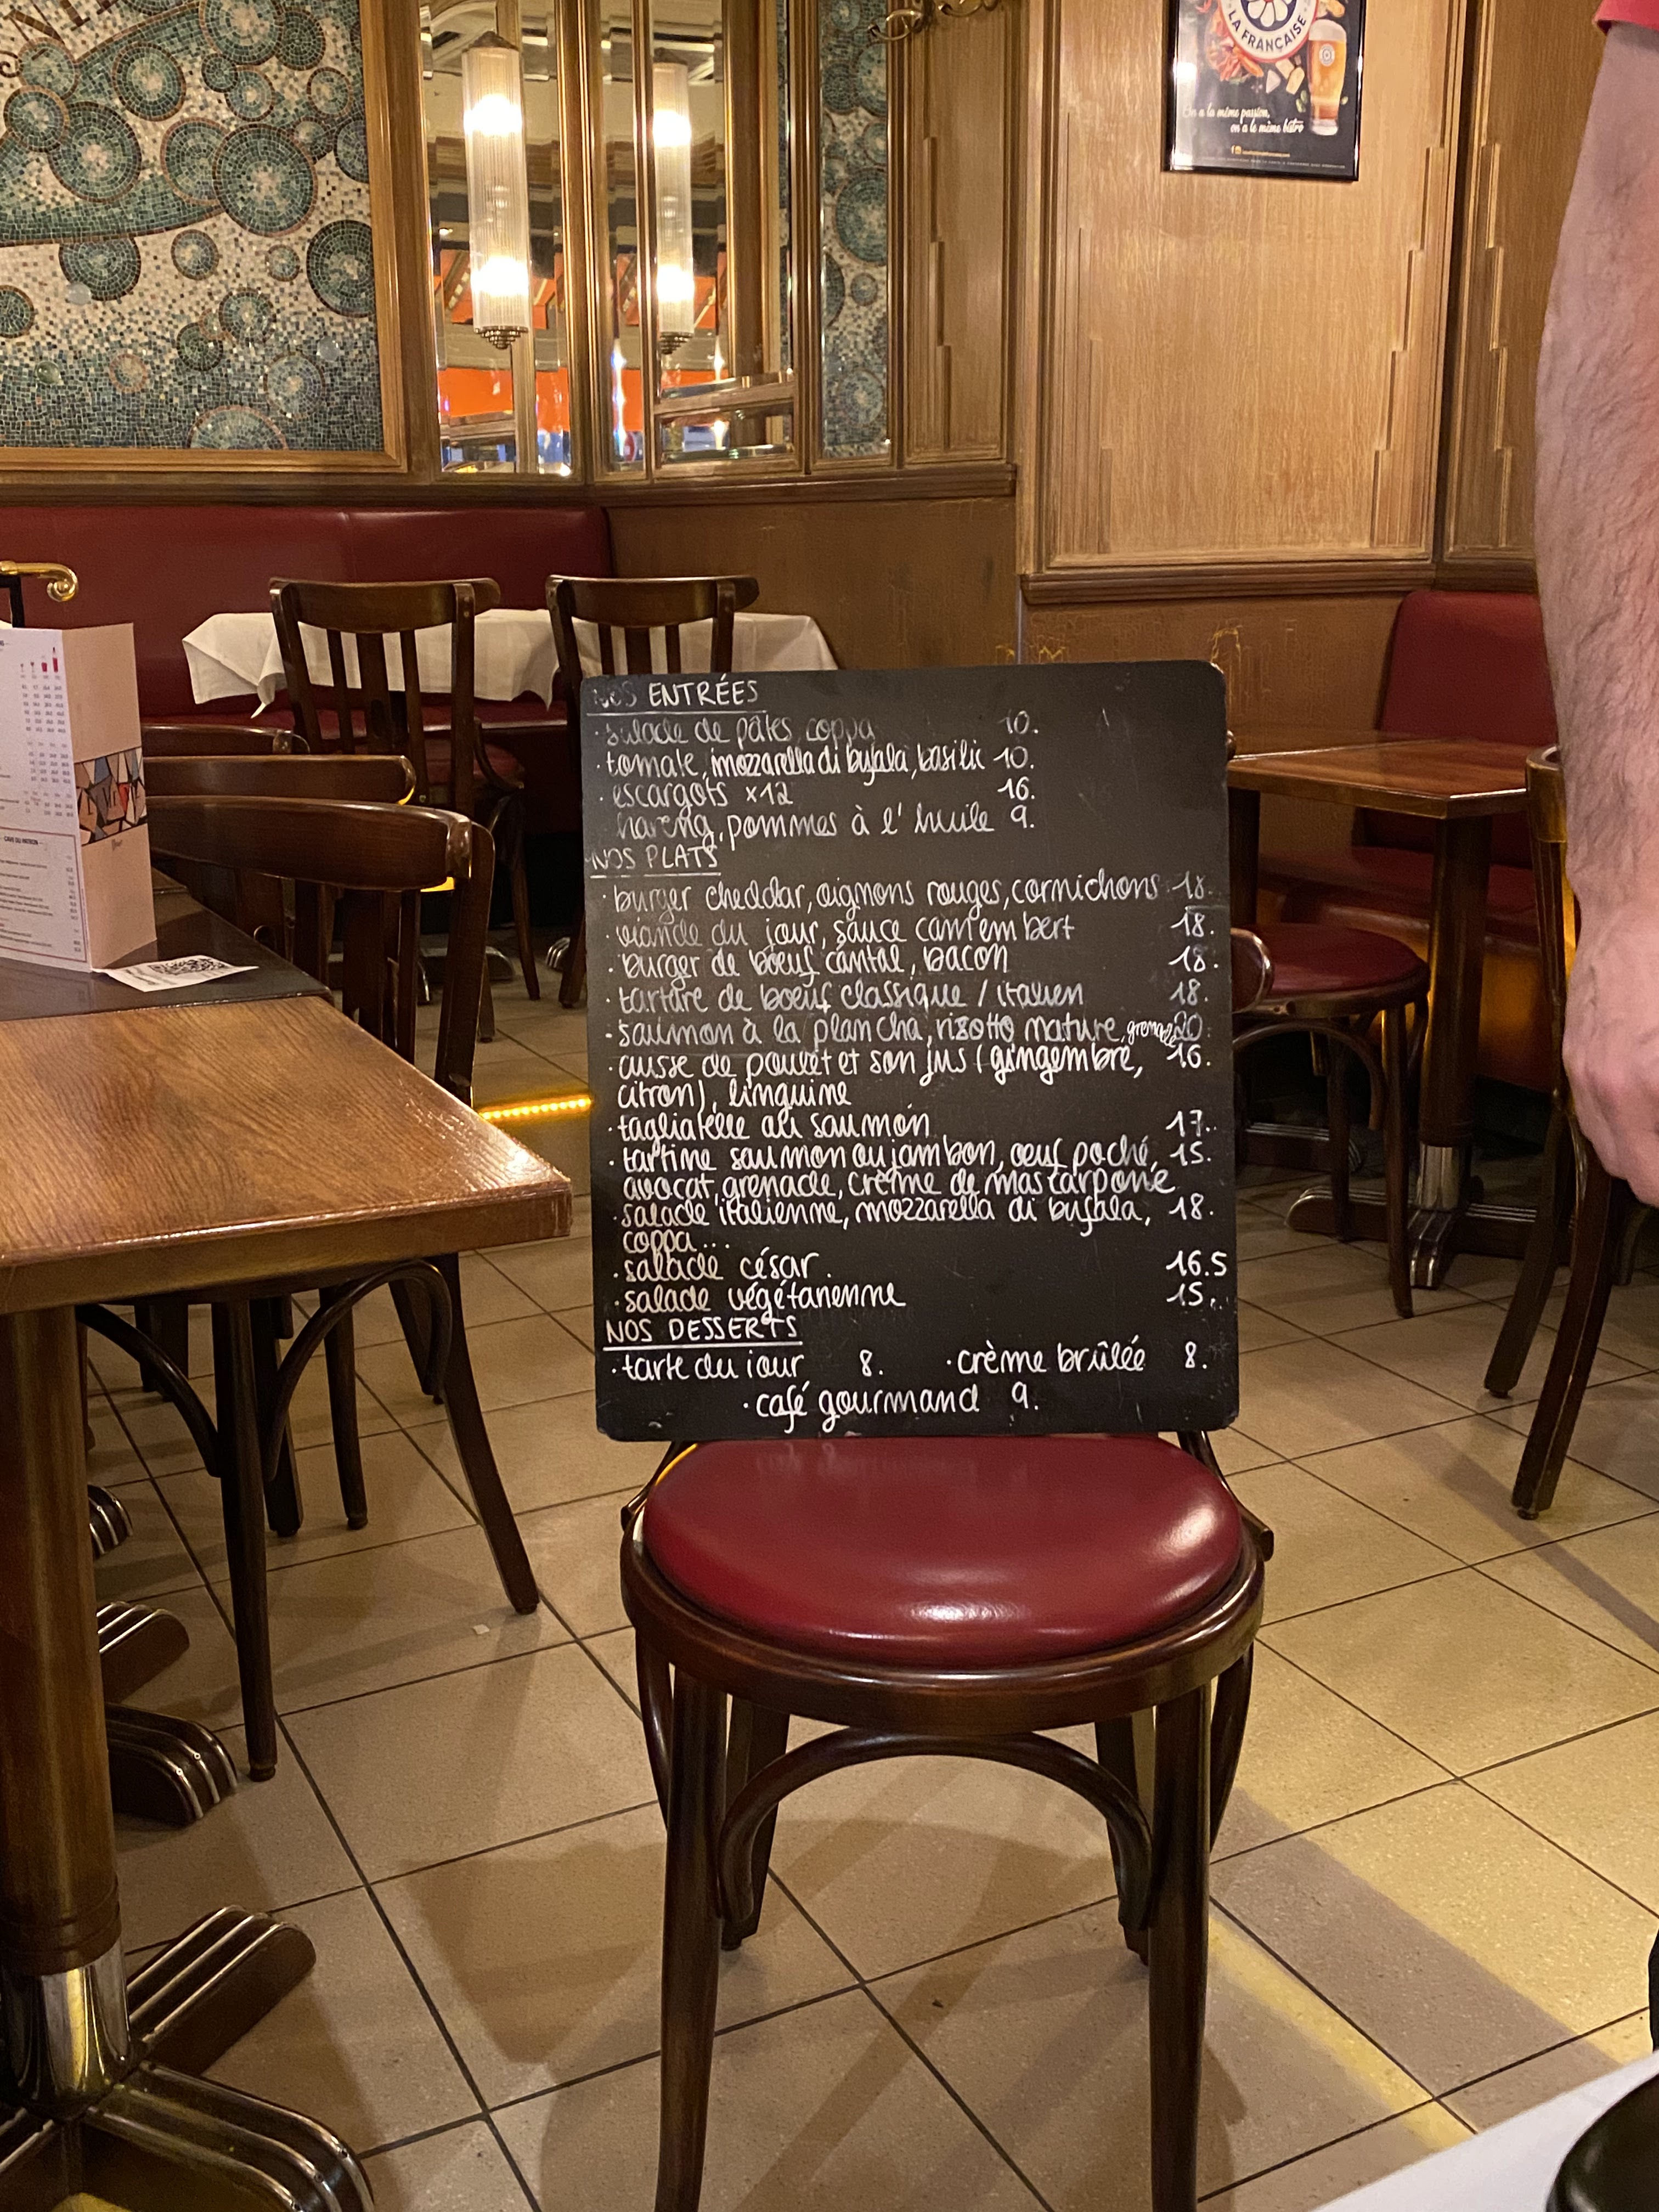 LA FRANÇAISE
On a la même passion,
on a le même bistro
CAVE DU PATRON
NOS ENTRÉES
· salade de pâtes coppa 10.
· tomate, mozzarella di bufala, basilic 10.
· escargots x12 16.
hareng, pommes à l'huile 9.
NOS PLATS
· burger cheddar, oignons rouges, cornichons 18.
· viande du jour, sauce camembert 18.
· burger de boeuf cantal, bacon 18.
· tartare de boeuf classique / italien 18.
· saumon à la plancha, risotto nature, grenade 20.
· cuisse de poulet et son jus (gingembre, 16.
citron), linguine
· tagliatelle au saumon 17.
· tartine saumon ou jambon, oeuf poché, 15.
avocat, grenade, crème de mascarpone
· salade italienne, mozzarella di bufala, 18.
coppa...
· salade césar. 16.5
· salade végétarienne 15.
NOS DESSERTS
· tarte du jour 8. · crème brûlée 8.
· café gourmand 9.